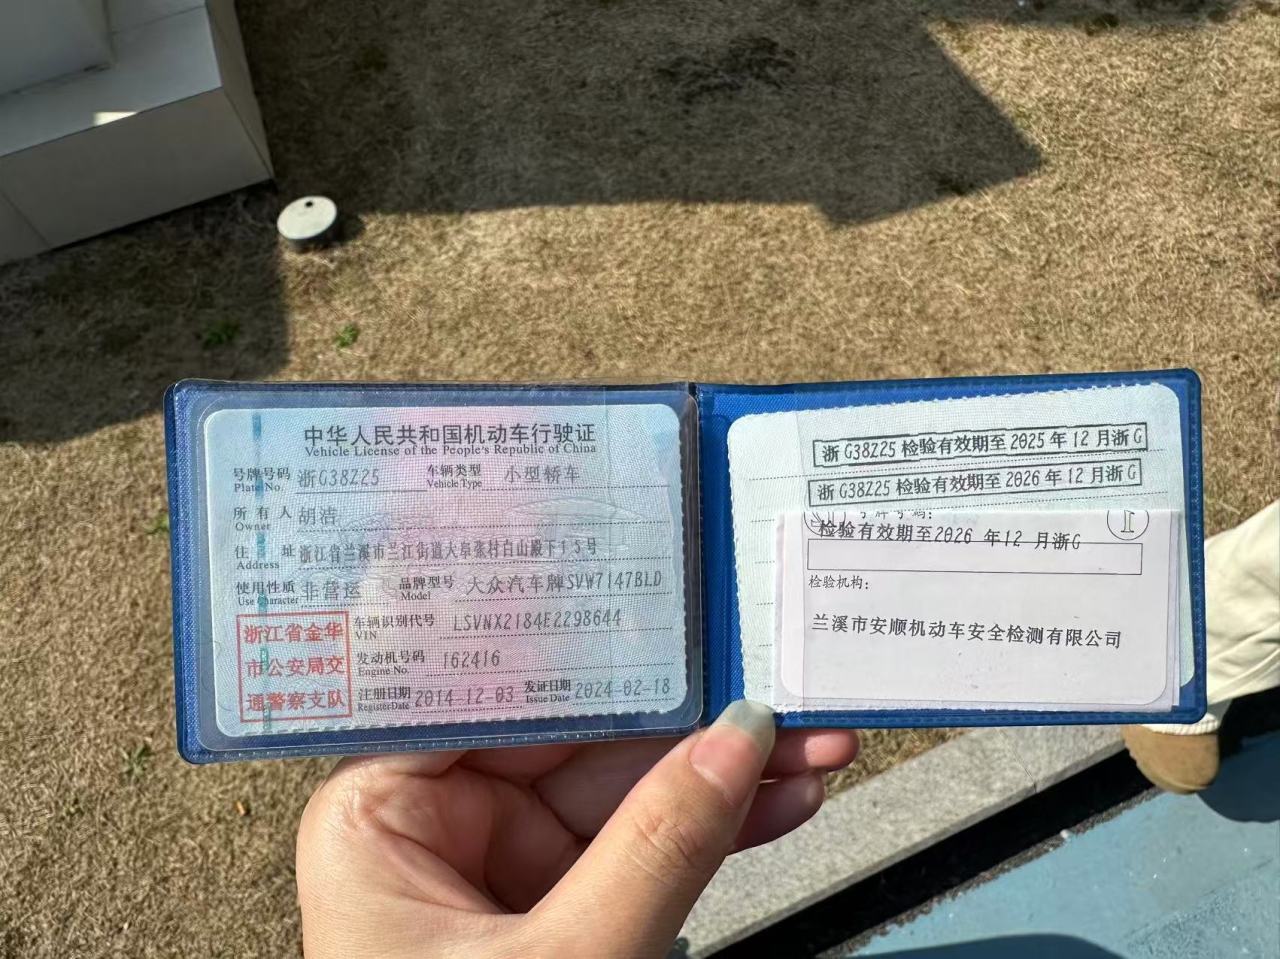 中华人民共和国机动车行驶证
Vehicle License of the People's Republic of China
号牌号码 浙G38Z25 车辆类型 小型轿车
Plate No. Vehicle Type
所有人 胡浩
Owner
住址 浙江省兰溪市兰江街道大阜张村白山殿下15号
Address
使用性质 非营运 品牌型号 大众汽车牌SVW7147BLD
Use Character Model
浙江省金华
市公安局交
通警察支队
车辆识别代号 LSVNX2184E2298644
VIN
发动机号码 162416
Engine No.
注册日期 2014-12-03 发证日期 2024-02-18
Register Date Issue Date
浙G38Z25检验有效期至2025年12月浙G
浙G38Z25检验有效期至2026年12月浙G
号牌号码:
检验有效期至2026 年12 月浙G
检验机构:
兰溪市安顺机动车安全检测有限公司